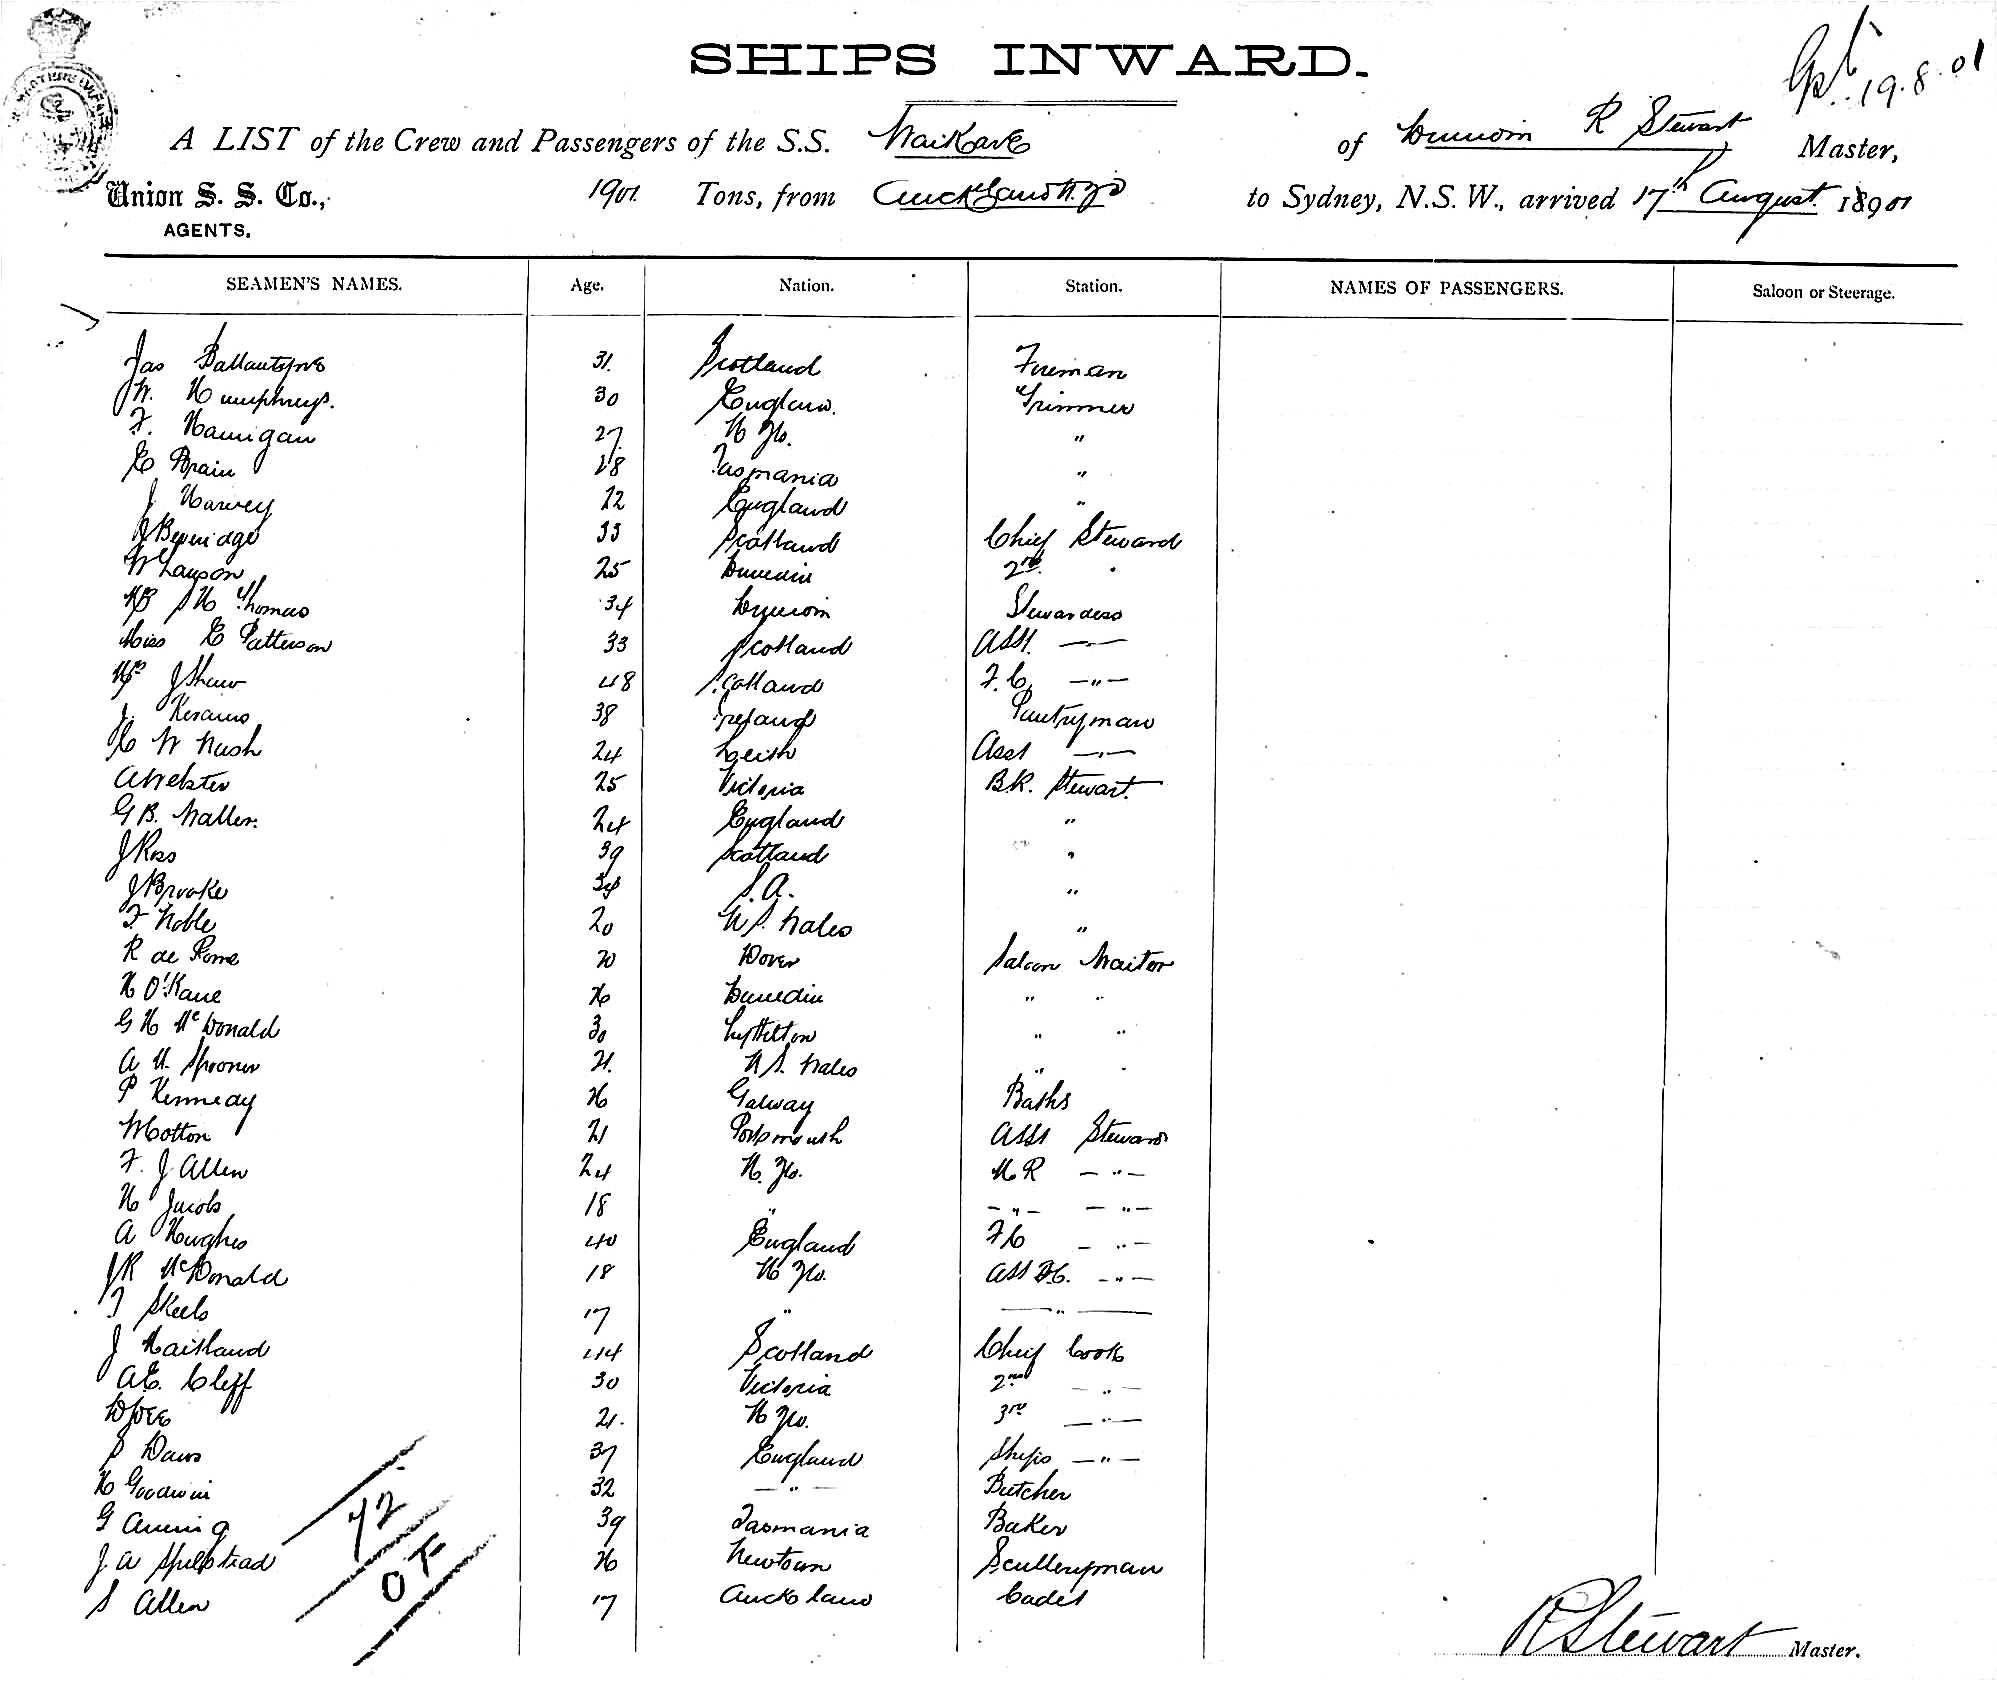 SHIPS INWARD.
19.8.01
A LIST of the Crew and Passengers of the S.S. Waikare of Dunedin R Stewart Master,
Union S. S. Co., 1901. Tons, from Auckland N.Z. to Sydney, N.S.W., arrived 17th August. 18901
AGENTS.
SEAMEN'S NAMES. Age. Nation. Station. NAMES OF PASSENGERS. Saloon or Steerage.
Jas Ballantyne 31. Scotland Fireman
W. Humphreys. 30 England. Trimmer
F. Hannigan 27. N Z. "
E Brain 28 Tasmania "
J Harvey 22 England "
J Beveridge 33 Scotland Chief Steward
W Lawson 25 Dunedin 2nd "
S H Thomas 34 Dunedin Stewardess
Miss E Patterson 33 Scotland Asst. —
Mrs J Shaw 48 Scotland F.C. —"—
J. 38 Ireland Pantryman
C W Nash 24 Leith Asst —"—
A Webster 25 Victoria B.R. Stewart.
G B. Waller. 24 England "
J Ross 39 Scotland "
J Brooke S.A. "
F Noble 20 N S. Wales "
R de 20 Dover Saloon Waiter
H O'Kane 26 Dunedin " "
G H McDonald 30 Lyttelton " "
A H Spooner 21. N S. Wales " "
P Kennedy 26 Galway Baths
W Cotton 21 Portsmouth Asst Steward
F. J Allen 24 N. Z. M R —"—
H Jacobs 18 " —"— —"—
A Hughes 40 England F C —"—
J R McDonald 18 N Z. Asst F.C. —"—
T Skeels 17 " —"—
J Maitland 44 Scotland Chief Cook
A E. Cliff 30 Victoria 2nd —"—
21. N Z. 3rd —"—
S Daws 37 England Ships —"—
H Goodwin 32 —"— Butcher
G Anning 39 Tasmania Baker
J. A 26 Newtown Sculleryman
S Allen 17 Auckland Cadet
72
OF
R Stewart Master.